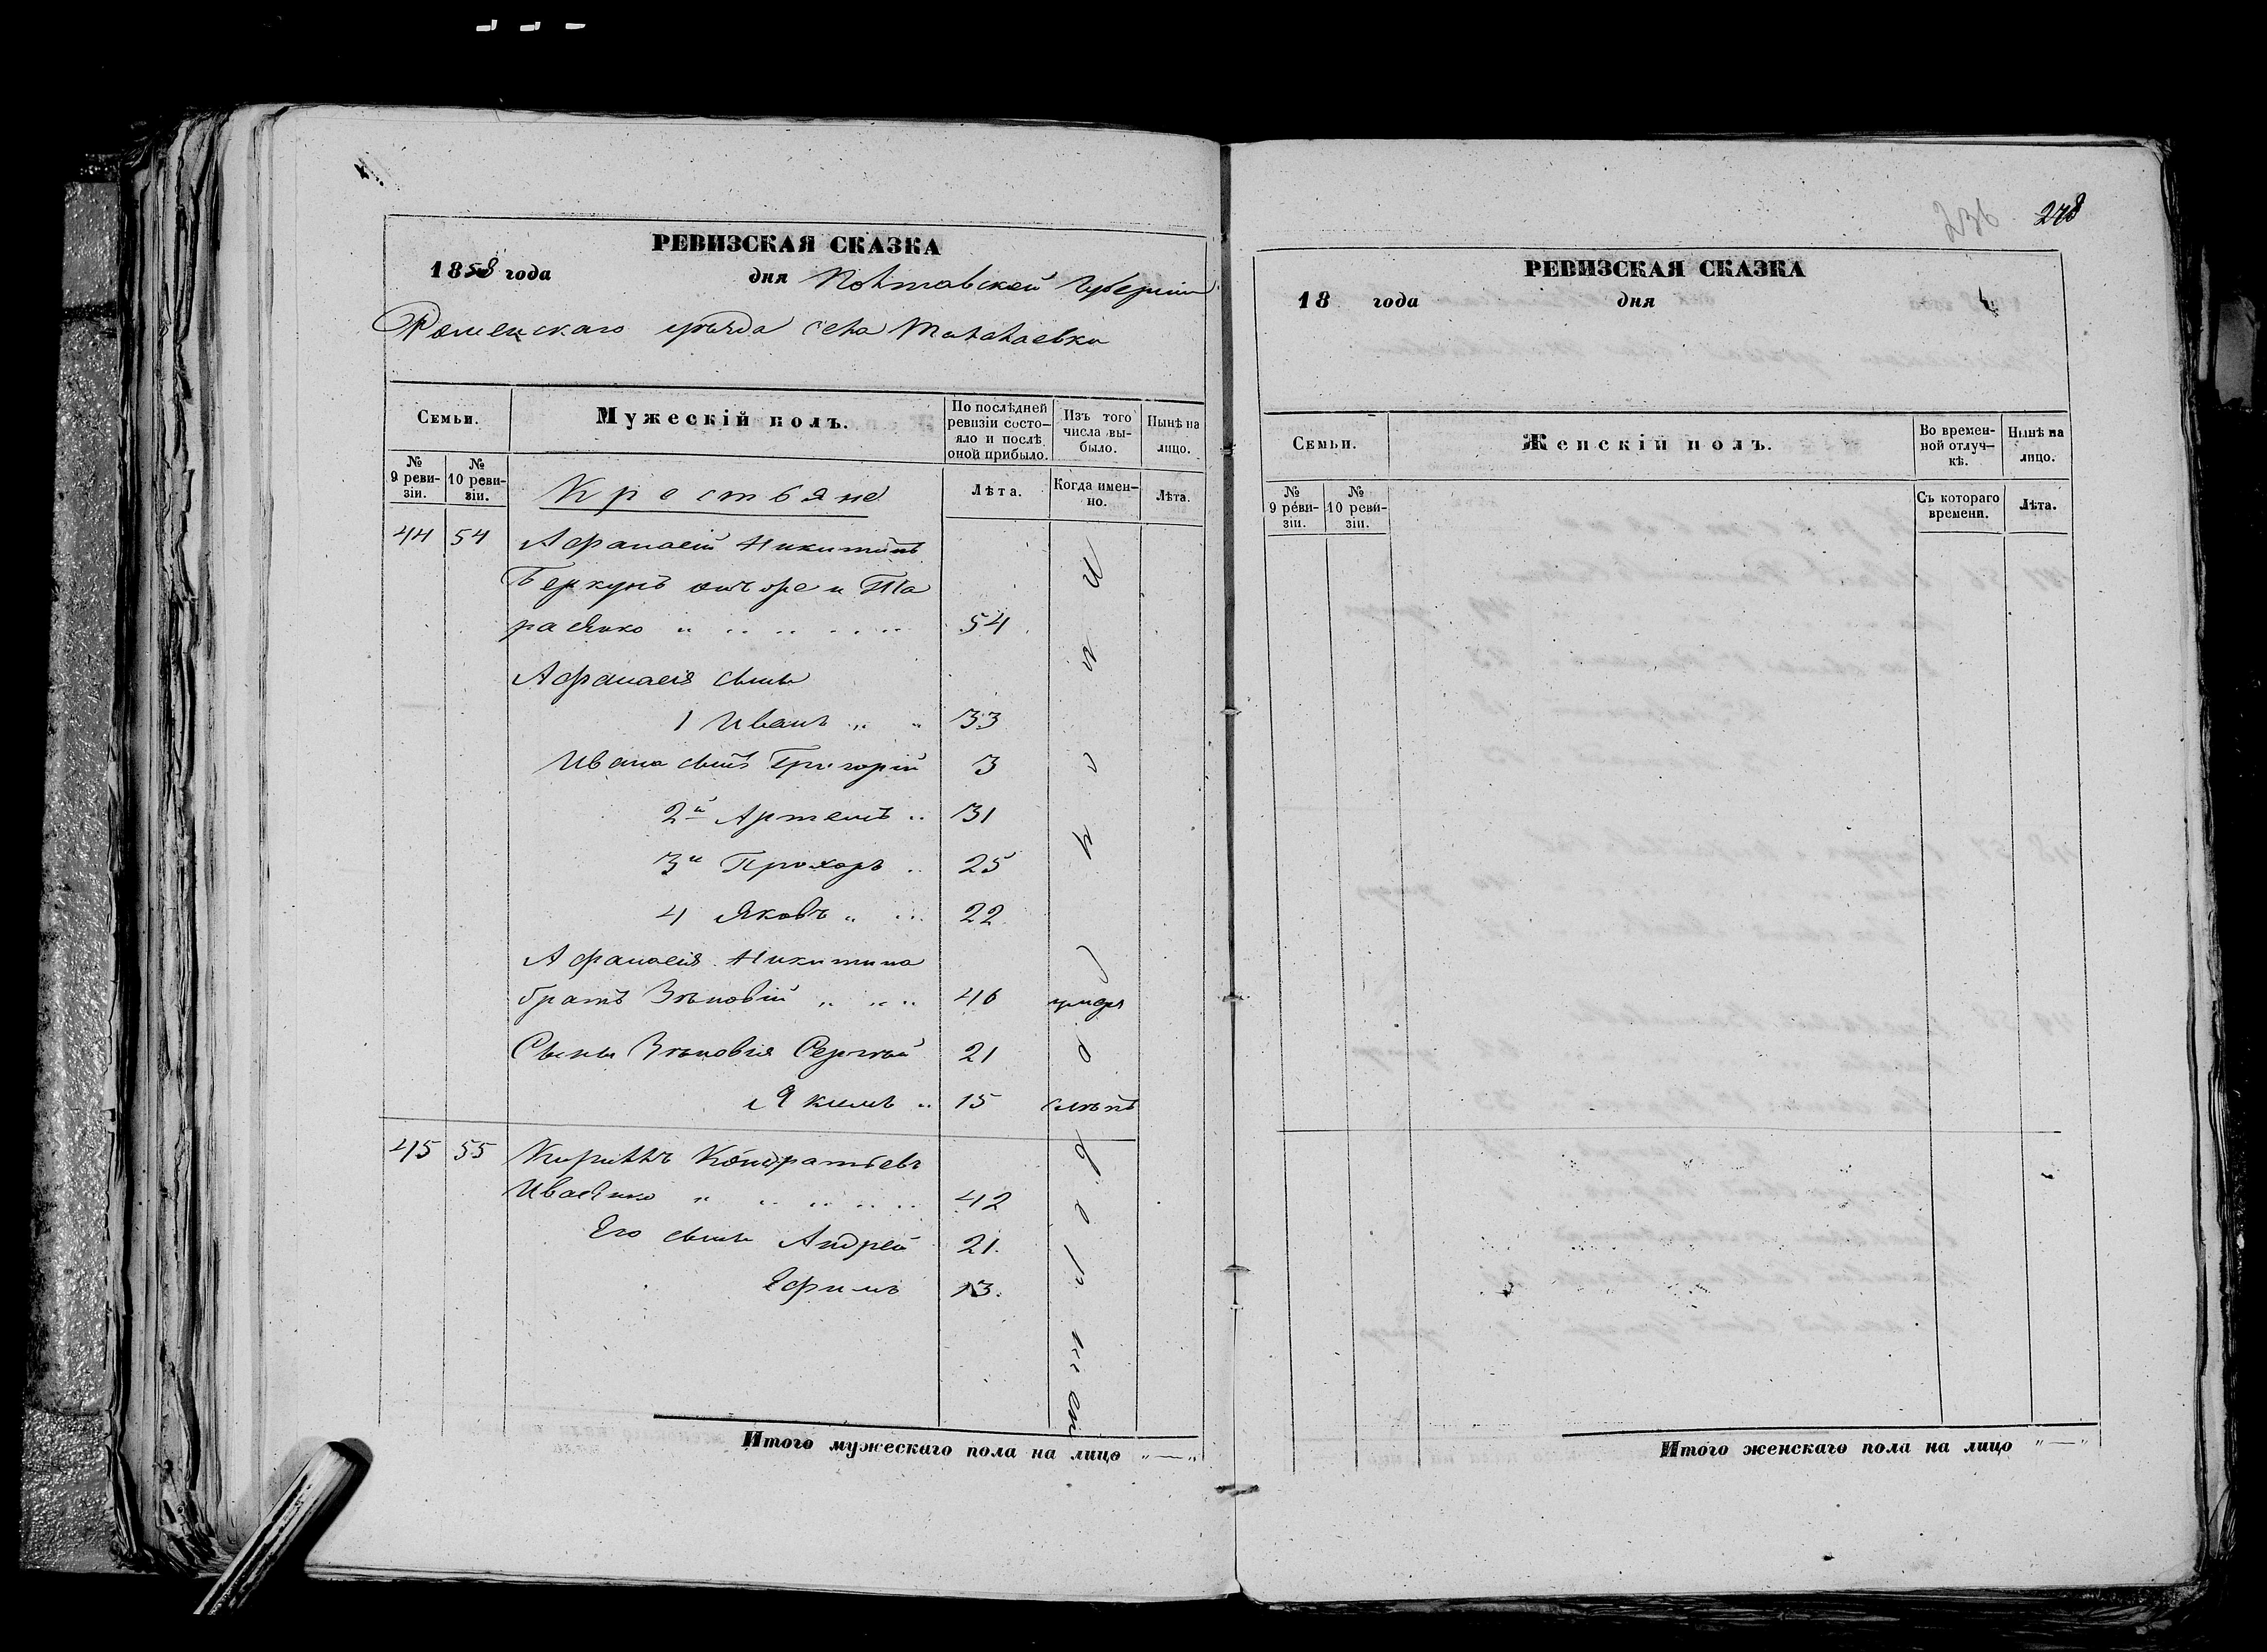 РЕВИЗСКАЯ СКАЗКА
1858 года дня Полтавской Губерніи
Роменскаго уѣзда села Талалаевки
Семьи.
Мужескій полъ.
По послѣдней ревизіи состо-
яло и послѣ
оной прибыло.
Изъ того
числа вы-
было.
Нынѣ на
лицо.
№
9 реви-
зіи.
№
10 реви-
зіи.
Крестьяне
Лѣта.
Когда имен-
но.
Лѣта.
44 54 Афанасій Никитинъ
Беркунъ онъ же и Та
расенко 54
Афанасія сыны
1 Иванъ 33
Ивана сынъ Григорій 3
2й Артемъ 31
3й Прохоръ 25
4 Яковъ 22
Афанасія Никитина
братъ Зѣновій 46 умеръ
Сыны Зѣновія Сергѣй 21
Якимъ 15 слѣпъ
45 55 Кириллъ Кондратьевъ
Ивасенко 42
Его сыны Андрей 21
Ефимъ 13.
Итого мужескаго пола на лицо "—"
236 278
РЕВИЗСКАЯ СКАЗКА
18 года дня
Семьи.
Женскій полъ.
Во времен-
ной отлуч-
кѣ.
Нынѣ на
лицо.
№
9 реви-
зіи.
№
10 реви-
зіи.
Съ котораго
времени.
Лѣта.
Итого женскаго пола на лицо "—"